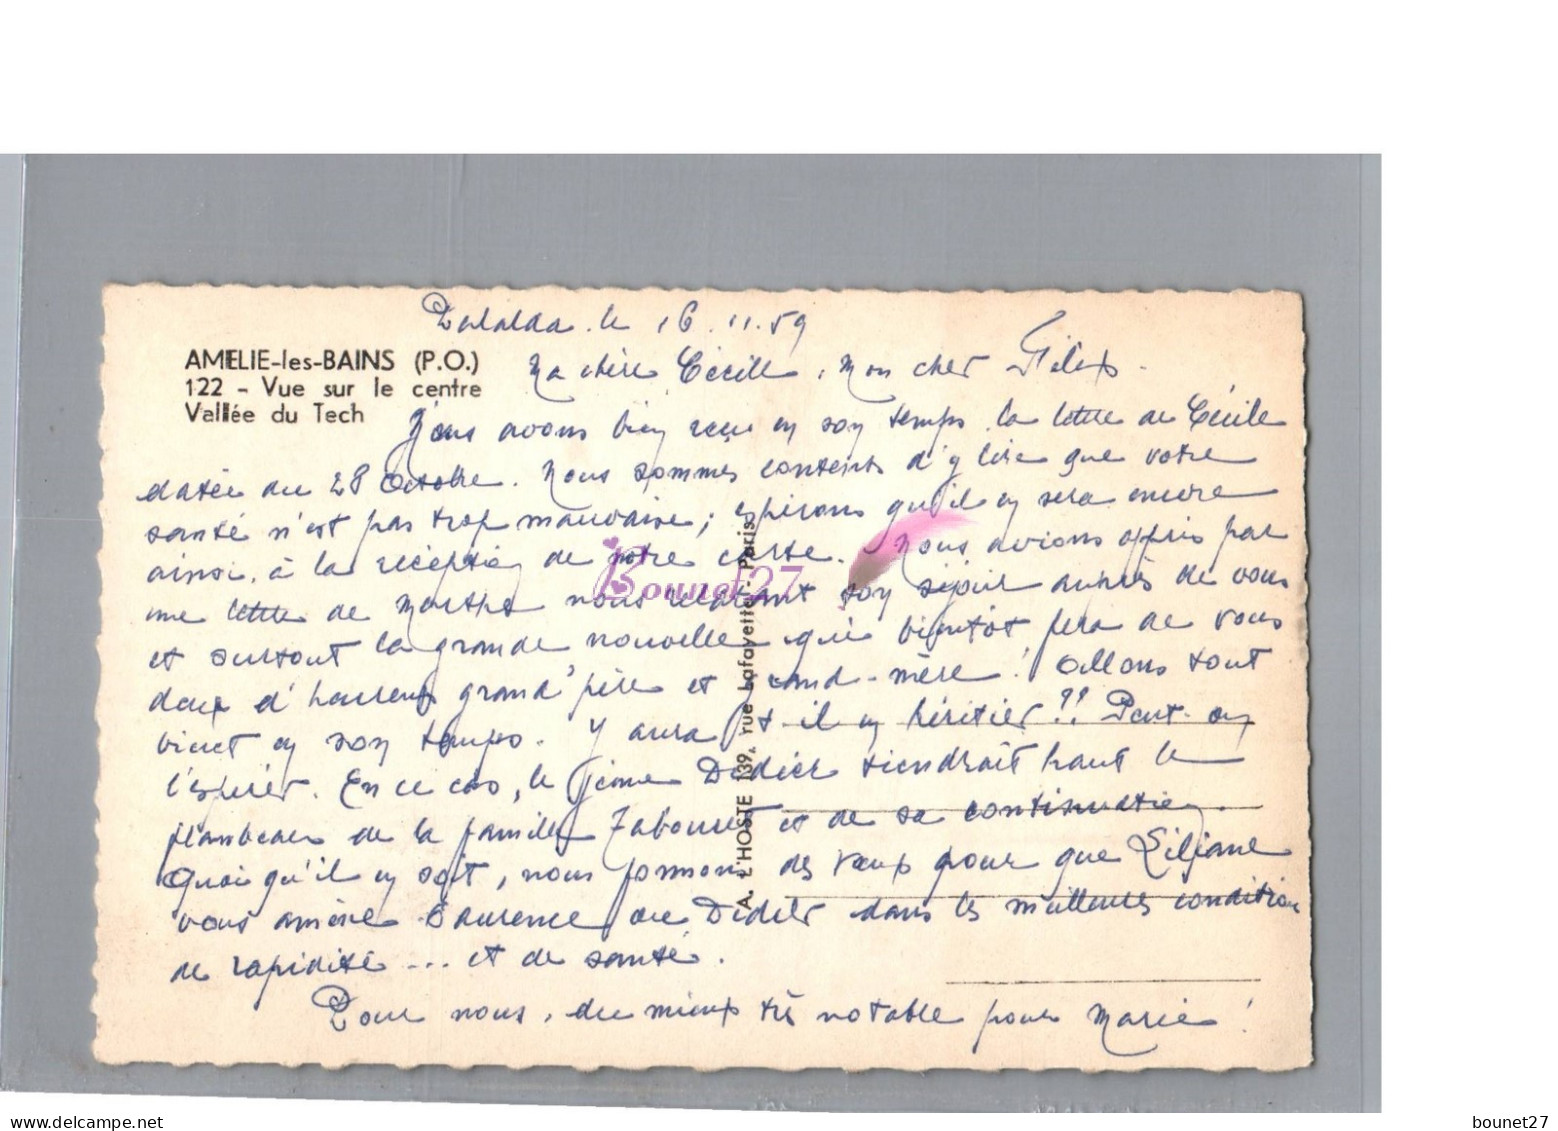 Palalda. le 16.11.59
AMELIE-les-BAINS (P.O.)
122 - Vue sur le centre
Vallée du Tech
Ma chère Cécile, Mon cher Félix.
Nous avons bien reçu en son temps la lettre de Cécile
datée du 28 Octobre. Nous sommes contents d'y lire que votre
santé n'est pas trop mauvaise; espérons qu'il en sera encore
ainsi, à la réception de notre carte. Nous avions appris par
une lettre de Marthe nous relatant son séjour auprès de vous
et surtout la grande nouvelle qui bientôt fera de vous
deux d'heureux grand'père et grand-mère! Allons tout
vient en son temps. Y aura t-il un héritier?? Peut-on
l'espérer. En ce cas, le jeune Didier tiendrait haut le
flambeau de la famille et de sa continuation
Quoi qu'il en soit, nous formons des vœux pour que Liliane
vous amène Laurence ou Didier dans les meilleures condition
de rapidité ... et de santé.
Pour nous, du mieux très notable pour Marie!
A. L'HOSTE 139, rue Lafayette - Paris
Bounet27
delcampe.net
bounet27